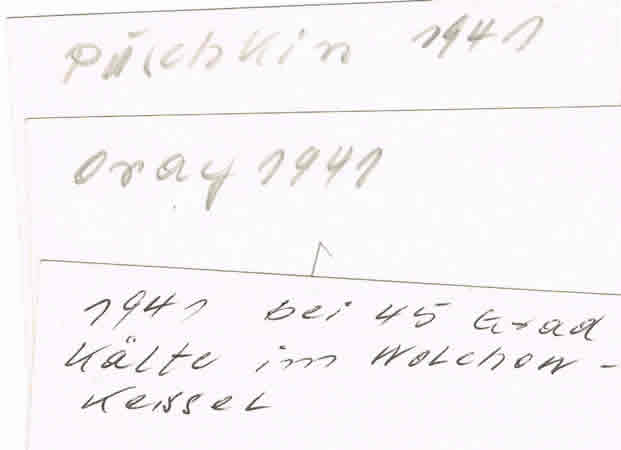 Puschkin 1941
Oray 1941
1941 bei 45 Grad
Kälte im Wolchow-
Kessel